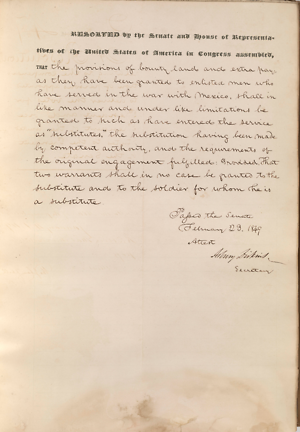 RESOLVED by the Senate and House of Representa-
tives of the United States of America in Congress assembled,
THAT the provisions of bounty land and extra pay,
as they have been granted to enlisted men who
have served in the war with Mexico, shall in
like manner and under like limitations be
granted to such as have entered the service
as "substitutes," the substitution having been made
by competent authority, and the requirements of
the original engagement fulfilled: Provided, That
two warrants shall in no case be granted to the
substitute and to the soldier for whom he is
a substitute.
Passed the Senate
February 23, 1849
Attest
Asbury Dickins
Secretary